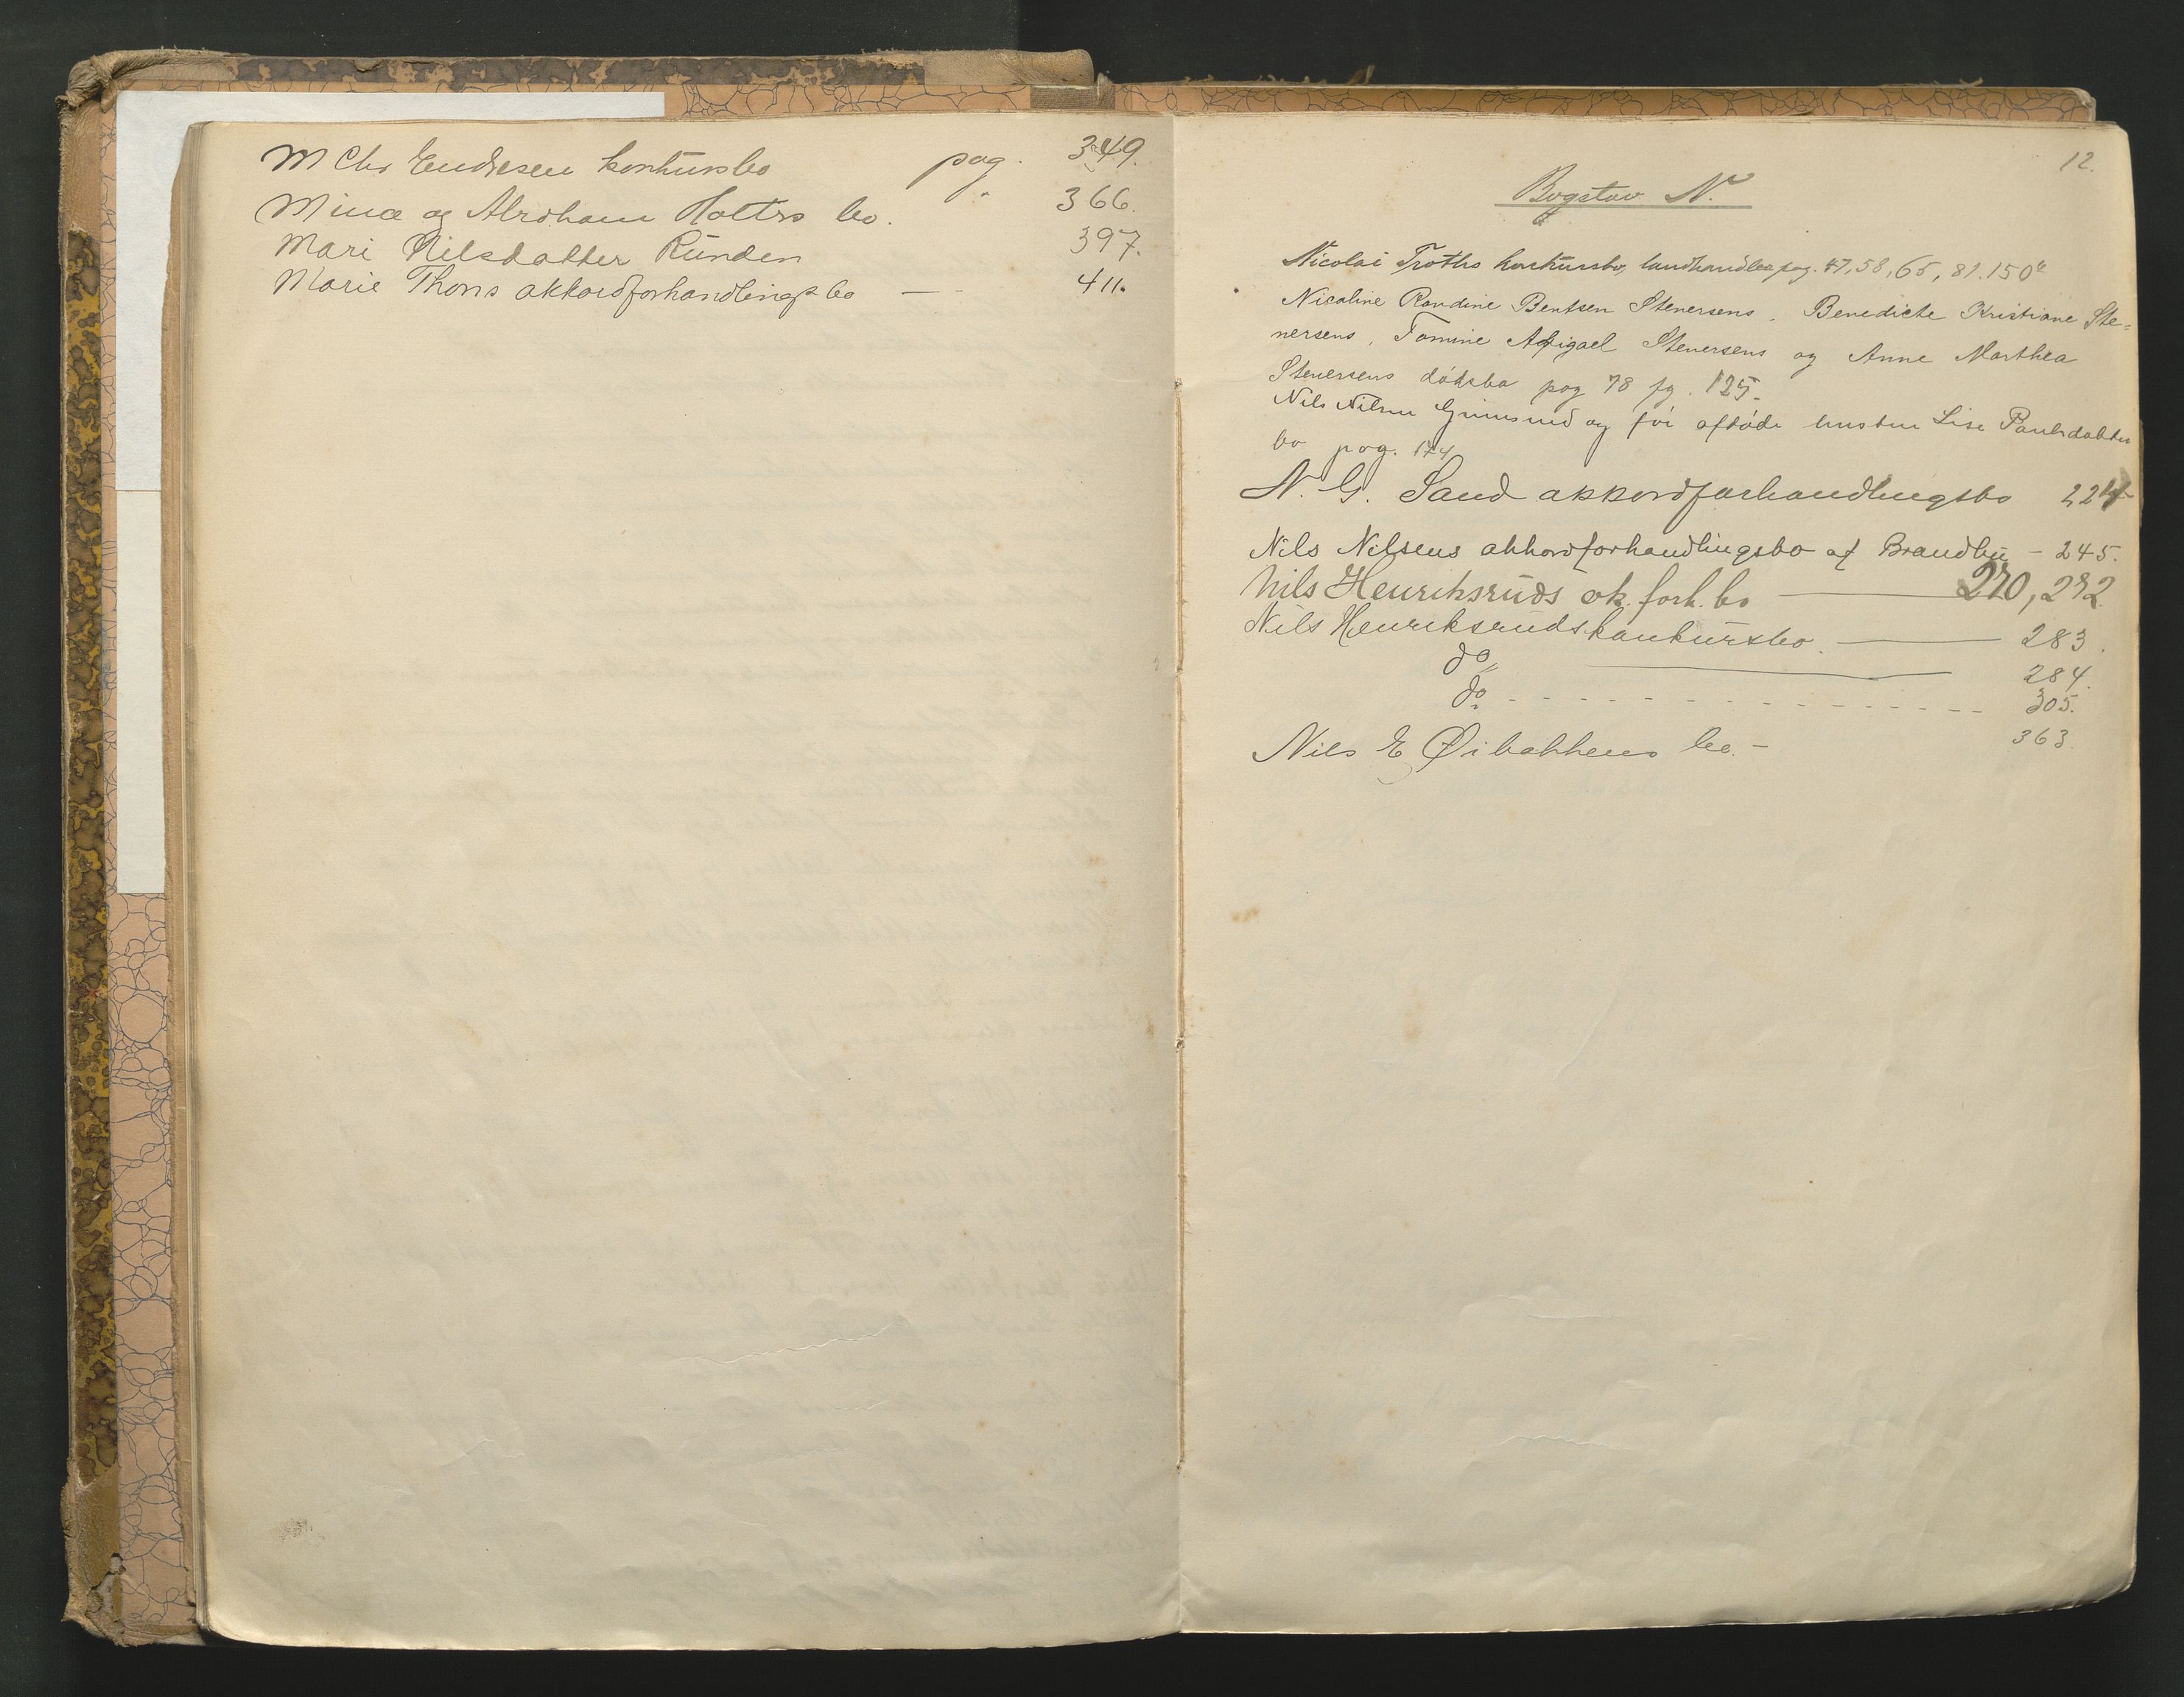 M Chr Endresen konkursbo pag. 349.
Mina og Abraham Holtes bo. " 366.
Mari Nilsdatter Runden 397.
Marie Thons akkordforhandlings bo — - 411.
12.
Bogstav N.
Nicolai Troths konkursbo, landhandler pag. 47, 58, 65, 81. 150
Nicoline Randine Bentsen Stenersens, Benedicte Kristiane Ste=
nersens, Tomine Abigael Stenersens og Anne Marthea
Stenersens dödsbo pag 78 fg. 125.
Nils Nilsen Grimsrud og för afdöde hustru Lise Paulsdatter
bo pag. 174
N. G. Sand akkordforhandlingsbo 224
Nils Nilsens akkordforhandlingsbo af Brandbu - 245.
Nils Henriksruds ak. forh. bo — 270, 292.
Nils Henriksruds konkursbo. — 283.
do — 284.
do - - - - - - - - - - - - - 305.
Nils E Øibakkens bo. - 363.